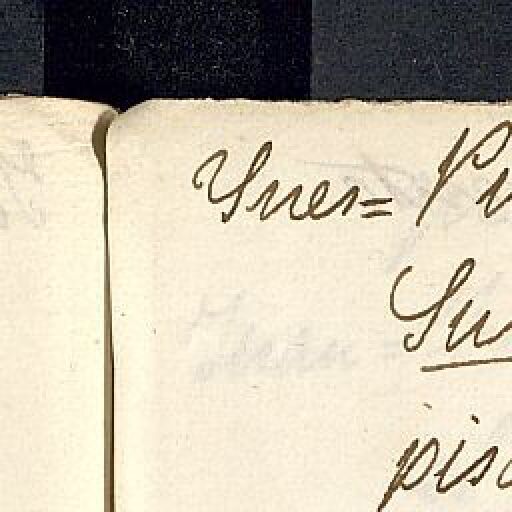 Ynes= Pu
Su
pis